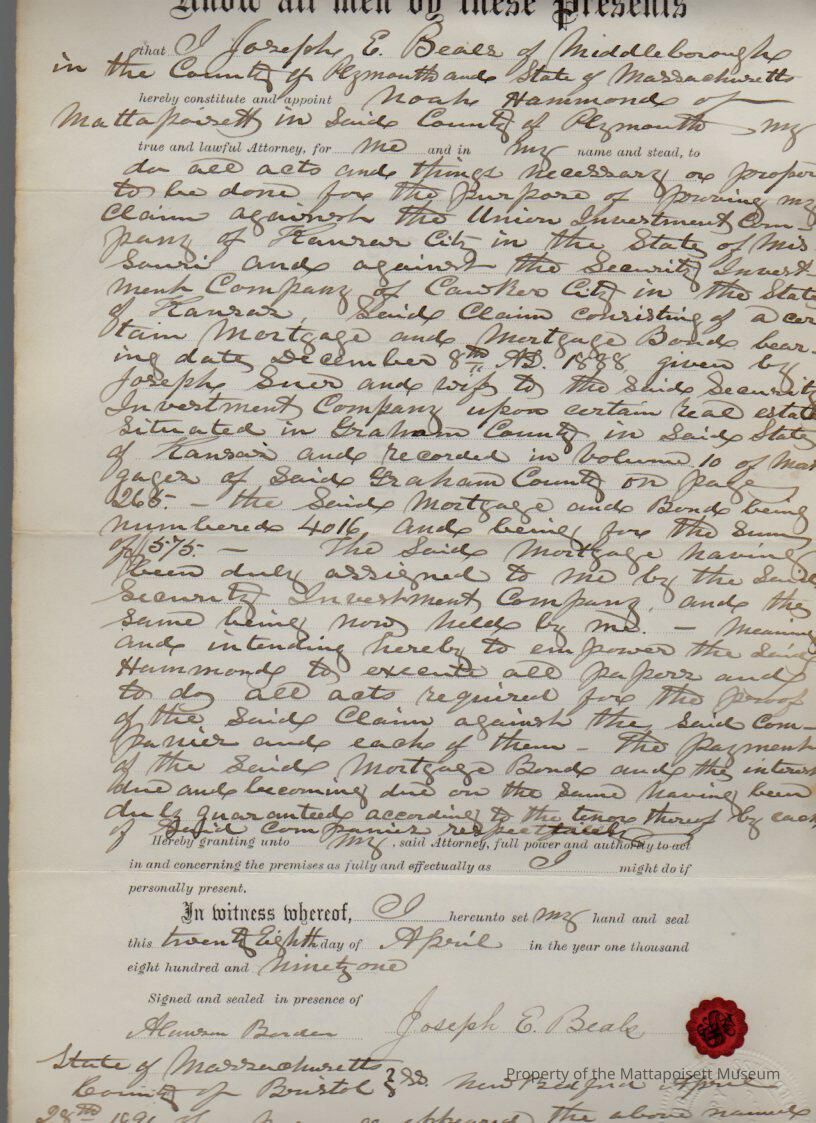 Know all men by these Presents
that I Joseph E. Beals of Middleborough
in the County of Plymouth and State of Massachusetts
hereby constitute and appoint Noah Hammond of
Mattapoisett in Said County of Plymouth my
true and lawful Attorney, for me and in my name and stead, to
do all acts and things necessary or proper
to be done for the purpose of proving my
Claim against the Union Investment Com-
pany of Kansas City in the State of Mis
souri and against the Security Invest
ment Company of Cawker City in the State
of Kansas, Said Claim consisting of a cer
tain Mortgage and Mortgage Bond bear-
ing date December 8th AD. 1888 given by
Joseph and wife to the Said Security
Investment Company upon certain real estate
Situated in Graham County in Said State
of Kansas and recorded in Volume 10 of Mort
gages of Said Graham County on page
265. – the Said Mortgage and Bond being
numbered 4016 and being for the Sum
of $575– The Said Mortgage having
been duly assigned to me by the Said
Security Investment Company, and the
Same being now held by me. – Meaning
and intending hereby to empower the Said
Hammond to execute all papers and
to do all acts required for the proof
of the Said Claim against the Said Com-
panies and each of them – The payment
of the Said Mortgage Bond and the interest
due and becoming due on the Same having been
duly guaranteed according to the tenor thereof by each
of Said Companies respectively
Hereby granting unto my , said Attorney, full power and authority to act
in and concerning the premises as fully and effectually as I might do if
personally present.
In witness whereof, I hereunto set my hand and seal
this twenty Eighth day of April in the year one thousand
eight hundred and Ninety one
Signed and sealed in presence of
Alanson Borden Joseph E. Beals
State of Massachusetts
County of Bristol } ss. New Bedford April
28th 1891 appeared the above named
Property of the Mattapoisett Museum